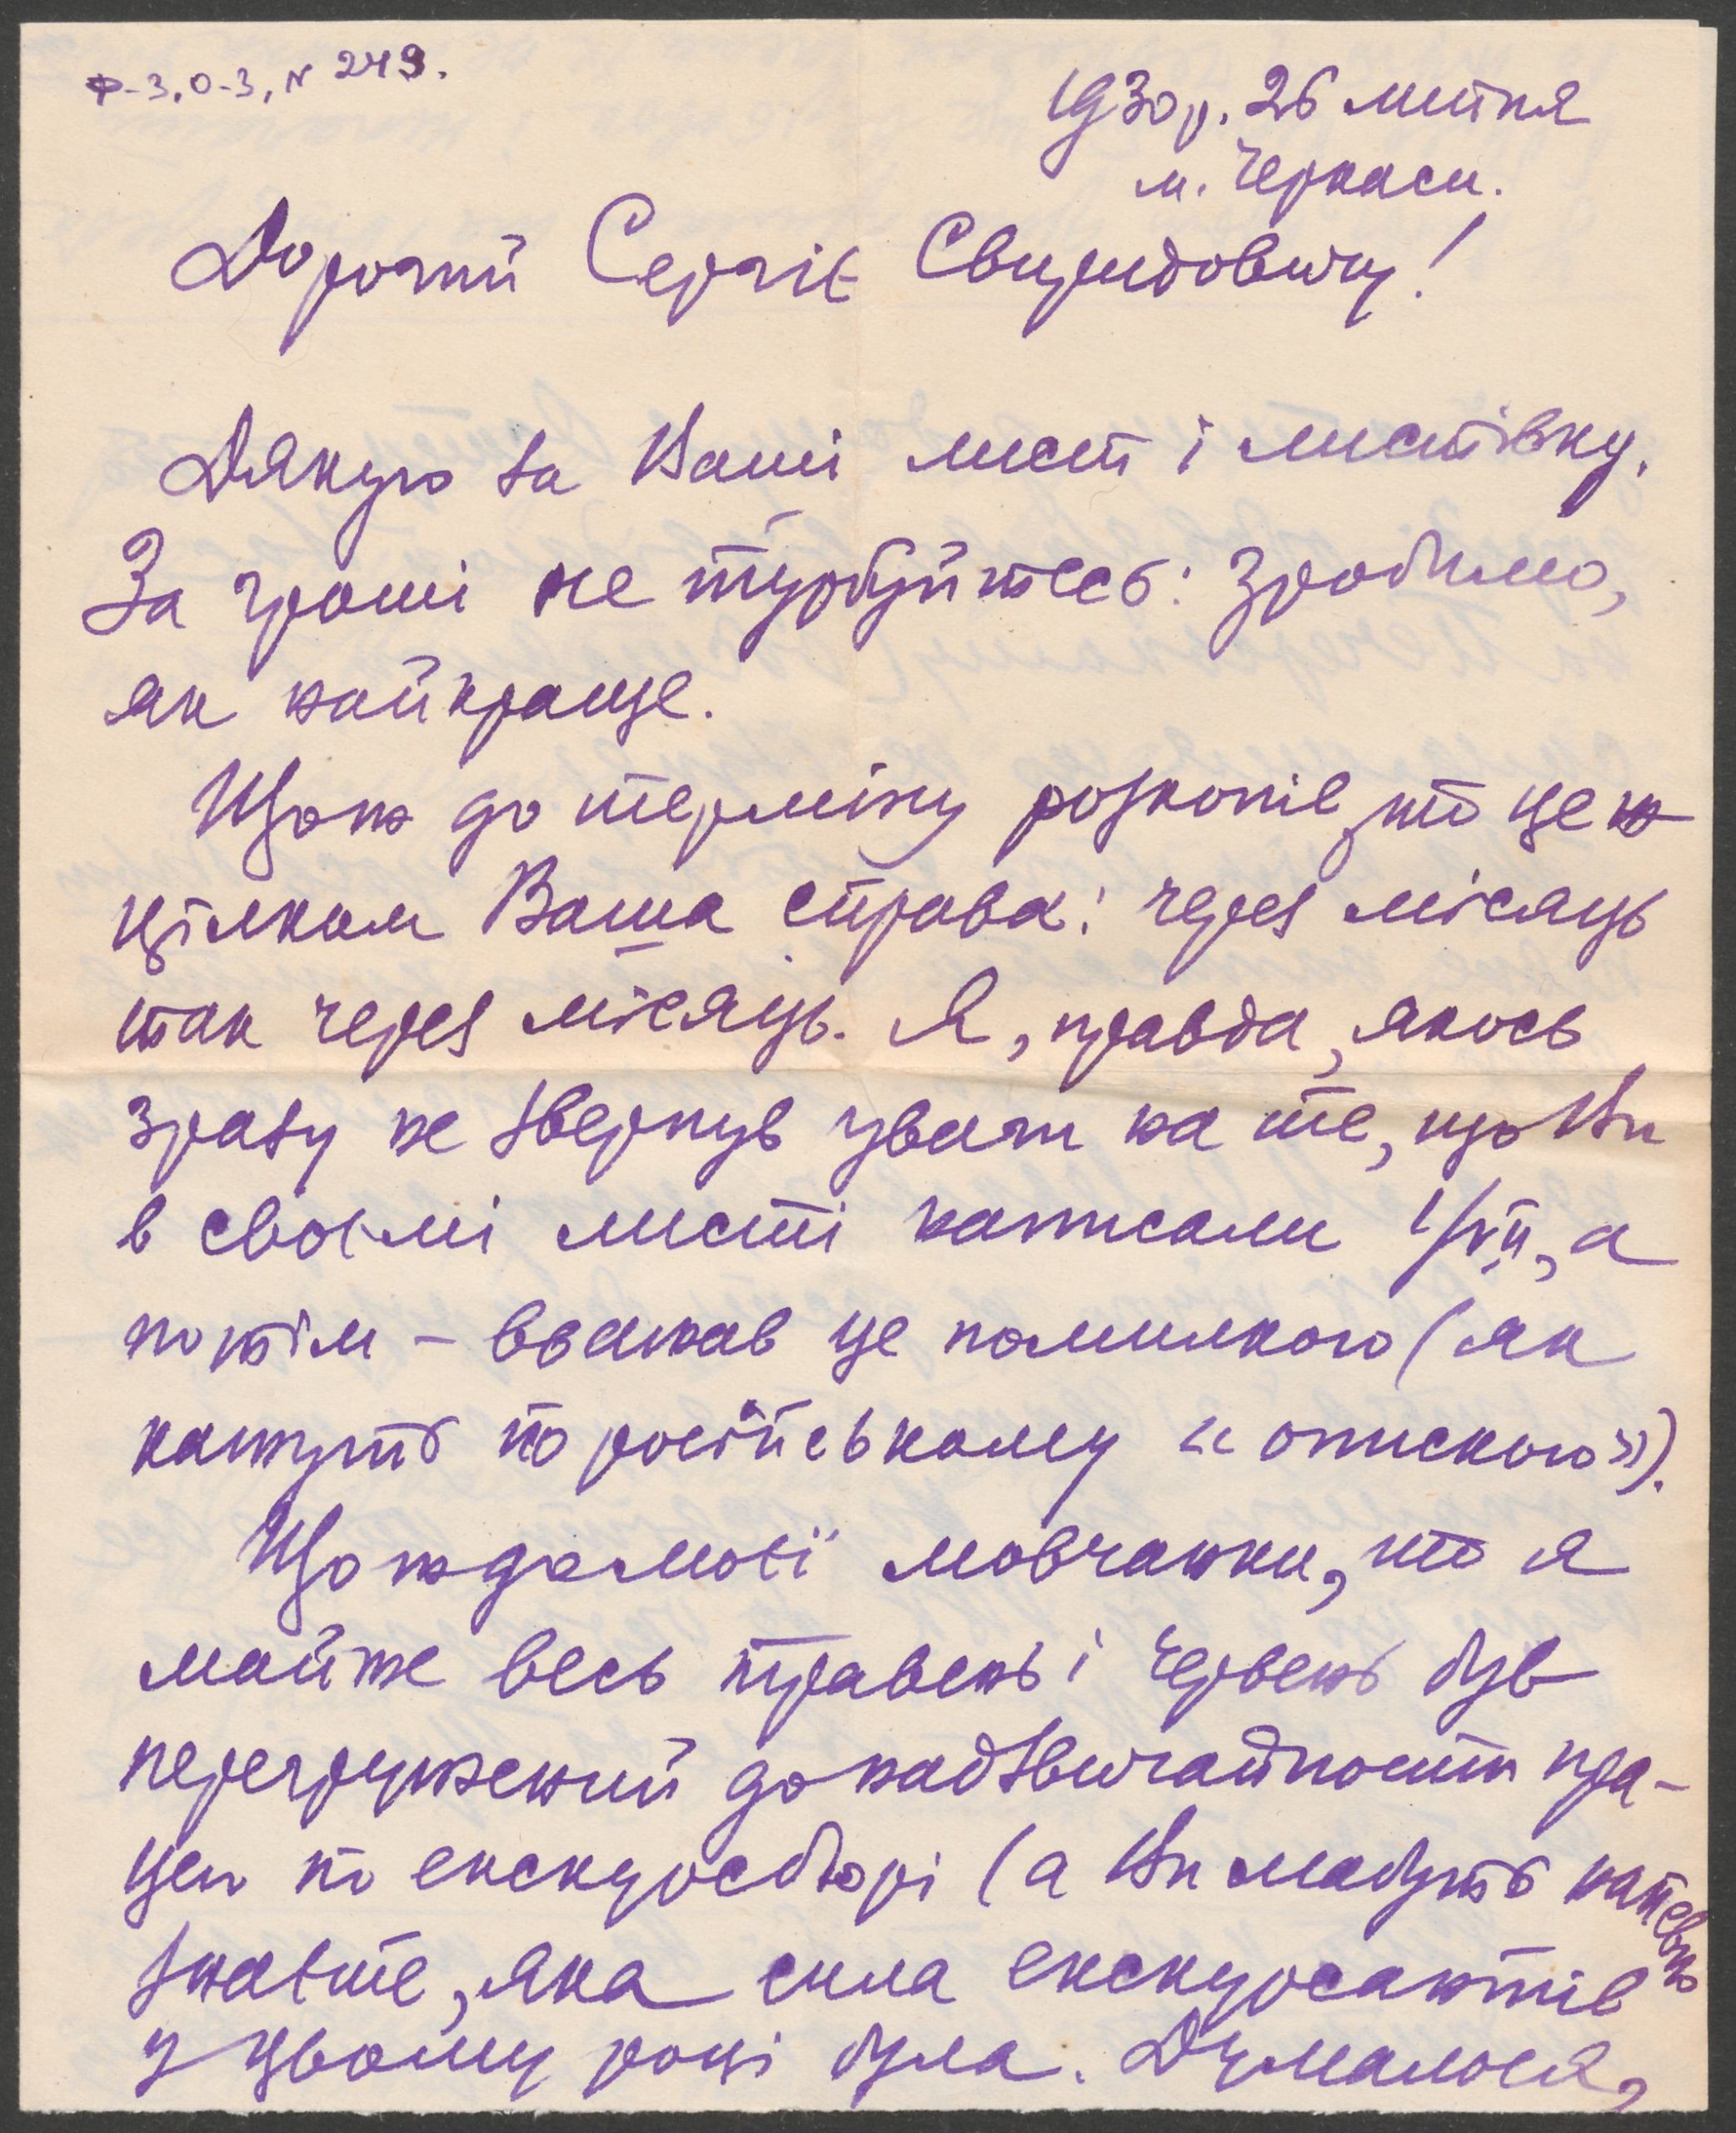 Ф-3, О-3, N 249.
1930 р. 26 липня
м. Черкаси.
Дорогий Сергіє Свиридовичу!
Дякую за Ваші лист і листівку.
За гроші не турбуйтесь: зробимо,
як найкраще.
Щож до терміну розкопів, то це ж
цілком Ваша справа: через місяць
так через місяць. Я, правда, якось
зразу не звернув уваги на те, що Ви
в своємі листі написали 1/VII, а
потім – вважав це помилкою (як
кажуть по російському «опискою»).
Що ж до моєї мовчанки, то я
майже весь травень і червень був
перегружений до надзвичайности пра-
цею по екскурсбюрі (а Ви мабуть напевно
знаєте, яка сила екскурсантів
у цьому році була. Думалося,